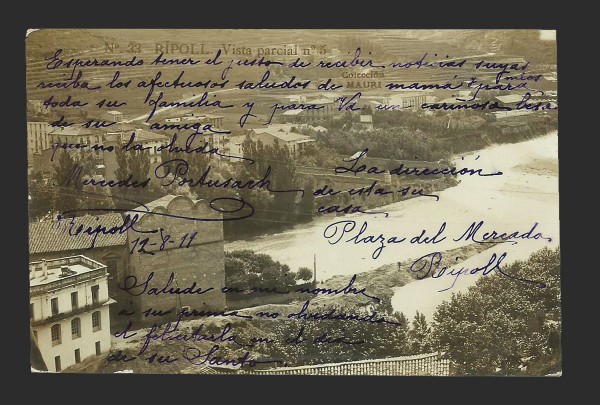 Nº. 33 RIPOLL. Vista parcial nº 5
Colección
MAURI
Esperando tener el gusto de recibir noticias suyas
reciba los afectuosos saludos de mamá y mios para
toda su familia y para Vd un cariñoso beso
de su amiga
que no la olvida
Mercedes
Ripoll
12-8-11
La dirección
de esta su
casa
Plaza del Mercado
Ripoll
Salude en mi nombre
a su prima no olvidando
el felicitarla en el día
de su Santo